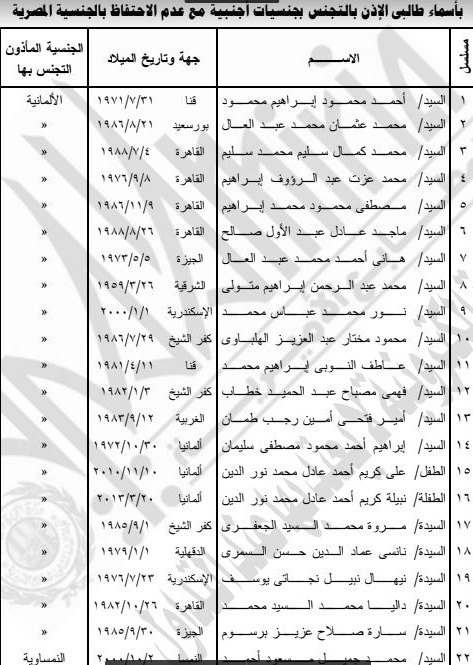 بأسماء طالبى الإذن بالتجنس بجنسيات أجنبية مع عدم الاحتفاظ بالجنسية المصرية
مسلسل الاســـم جهة وتاريخ الميلاد الجنسية المأذون التجنس بها
١ السيد/ أحمد محمود إبراهيم محمود قنا ١٩٧١/٧/٣١ الألمانية
٢ السيد/ محمد عثمان محمد عبد العال بورسعيد ١٩٨٦/٨/٢١ »
٣ السيد/ محمد كمال سليم محمد سليم القاهرة ١٩٨٨/٧/٤ »
٤ السيد/ محمد عزت عبد الرؤوف إبراهيم القاهرة ١٩٧٦/٩/٨ »
٥ السيد/ مصطفى محمود محمد إبراهيم القاهرة ١٩٨٦/١١/٩ »
٦ السيد/ ماجد عادل عبد الأول صالح القاهرة ١٩٨٨/٨/٢٦ »
٧ السيد/ هانى أحمد محمد عبد العال الجيزة ١٩٧٣/٥/٥ »
٨ السيد/ محمد عبد الرحمن إبراهيم متولى الشرقية ١٩٥٩/٣/٢٦ »
٩ السيد/ نور محمد عباس محمد الإسكندرية ٢٠٠٠/١/١ »
١٠ السيد/ محمود مختار عبد العزيز الهلباوى كفر الشيخ ١٩٨٦/٧/٢٩ »
١١ السيد/ عاطف النوبى إبراهيم محمد قنا ١٩٨١/٤/١١ »
١٢ السيد/ فهمى مصباح عبد الحميد خطاب كفر الشيخ ١٩٨٢/١/٣ »
١٣ السيد/ أمير فتحى أمين رجب طمان الغربية ١٩٨٣/٩/١٢ »
١٤ السيد/ إبراهيم أحمد محمود مصطفى سليمان ألمانيا ١٩٧٢/١٠/٣٠ »
١٥ الطفل/ على كريم أحمد عادل محمد نور الدين ألمانيا ٢٠١٠/١١/١٠ »
١٦ الطفلة/ نبيلة كريم أحمد عادل محمد نور الدين ألمانيا ٢٠١٣/٣/٢٠ »
١٧ السيدة/ مروة محمد السيد الجعفرى كفر الشيخ ١٩٨٥/٩/١ »
١٨ السيدة/ نانسى عماد الدين حسن السمرى الدقهلية ١٩٧٩/١/١ »
١٩ السيدة/ نيهال نبيل نجاتى يوسف الإسكندرية ١٩٧٦/٧/٢٣ »
٢٠ السيدة/ داليا محمد السيد محمد القاهرة ١٩٨٢/١٠/٢٦ »
٢١ السيدة/ سارة صلاح عزيز برسوم الجيزة ١٩٨٥/٩/٣٠ »
٢٢ السيد/ محمد جميل مسعود أحمد النمسا ٢٠٠٠/١٠/٢ النمساوية